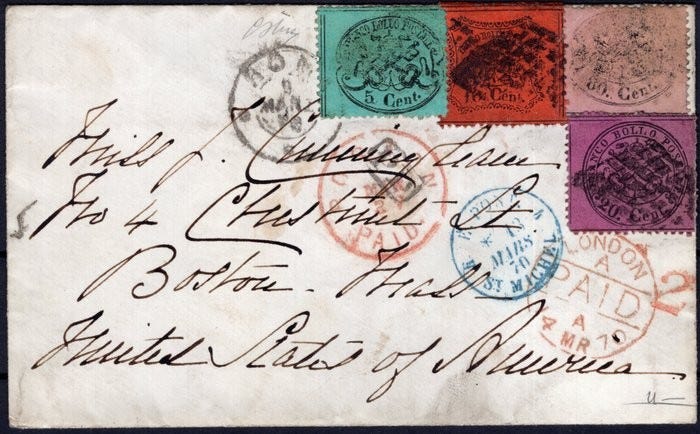 FRANCO BOLLO POSTALE
5 Cent.
10 Cent.
80. Cent.
FRANCO BOLLO POSTALE
20. Cent.
ROMA
MAR
Miss J. Cunningham
No 4 Chestnut St.
Boston. Mass
United States of America
PAID
12
MARS
70
ST MICHEL
LONDON
A
PAID
A
4 MR 70
2